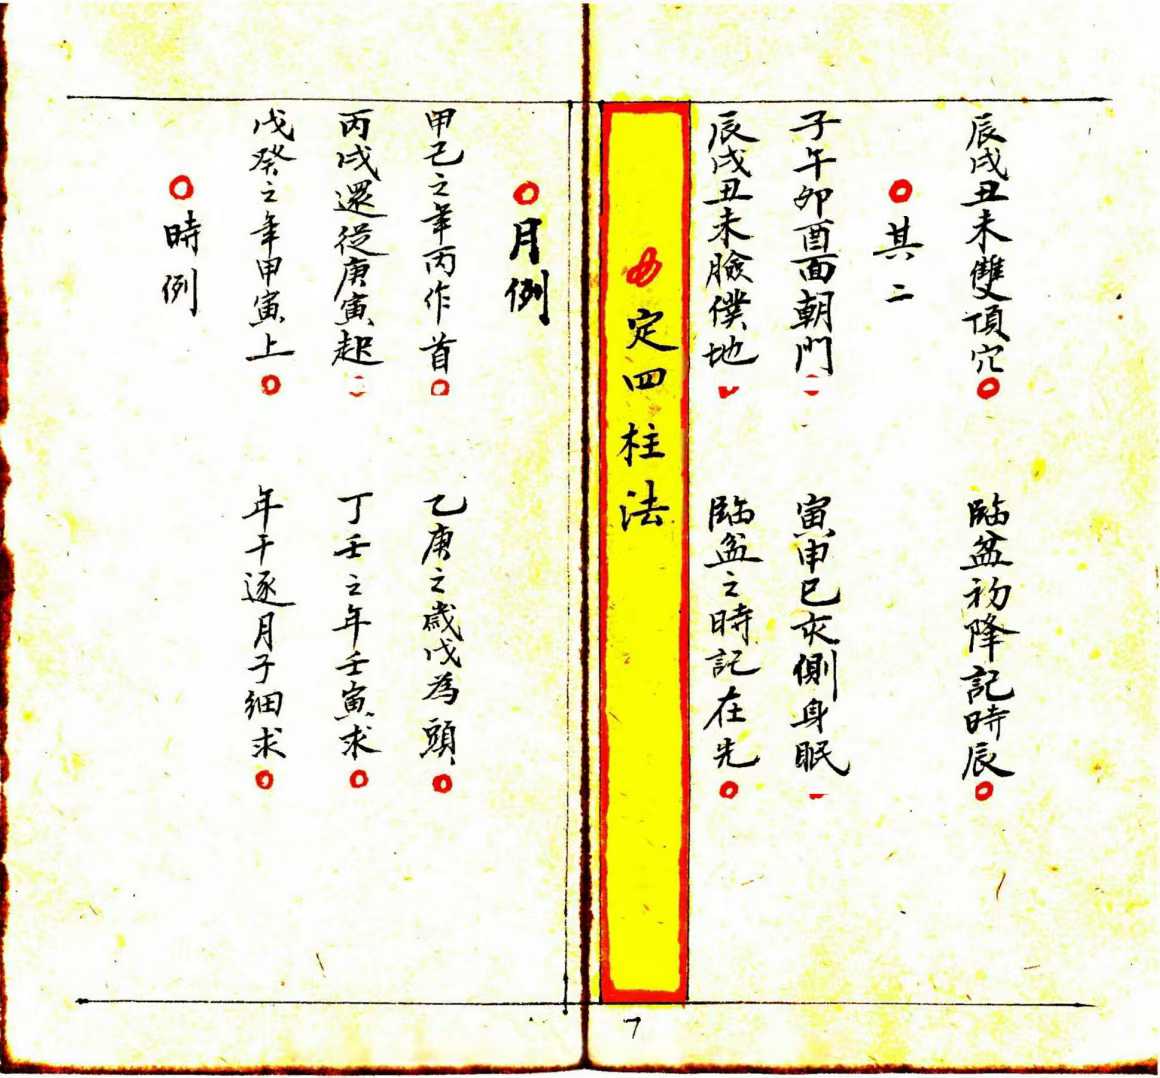 辰戌丑未雙頂穴 臨盆初降記時辰
其二
子午卯酉面朝門 寅申巳亥側身眠
辰戌丑未臉僕地 臨盆之時記在先
定四柱法
7
月例
甲己之年丙作首 乙庚之歲戊為頭
丙戌還從庚寅起 丁壬之年壬寅求
戊癸之年甲寅上 年干逐月子細求
時例